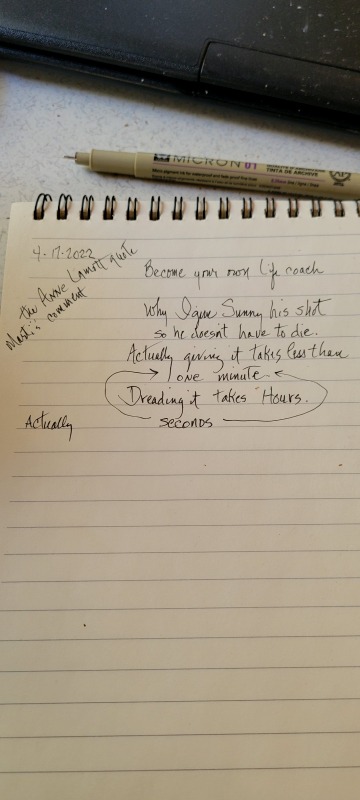 MICRON 01
TINTA DE ARCHIVE
AP
4-17-2022
the Anne Lamott quote
Mastii's comment
Become your own life coach
Why I give Sunny his shot
so he doesn't have to die.
Actually giving it takes less than
one minute
Dreading it takes Hours.
Actually seconds